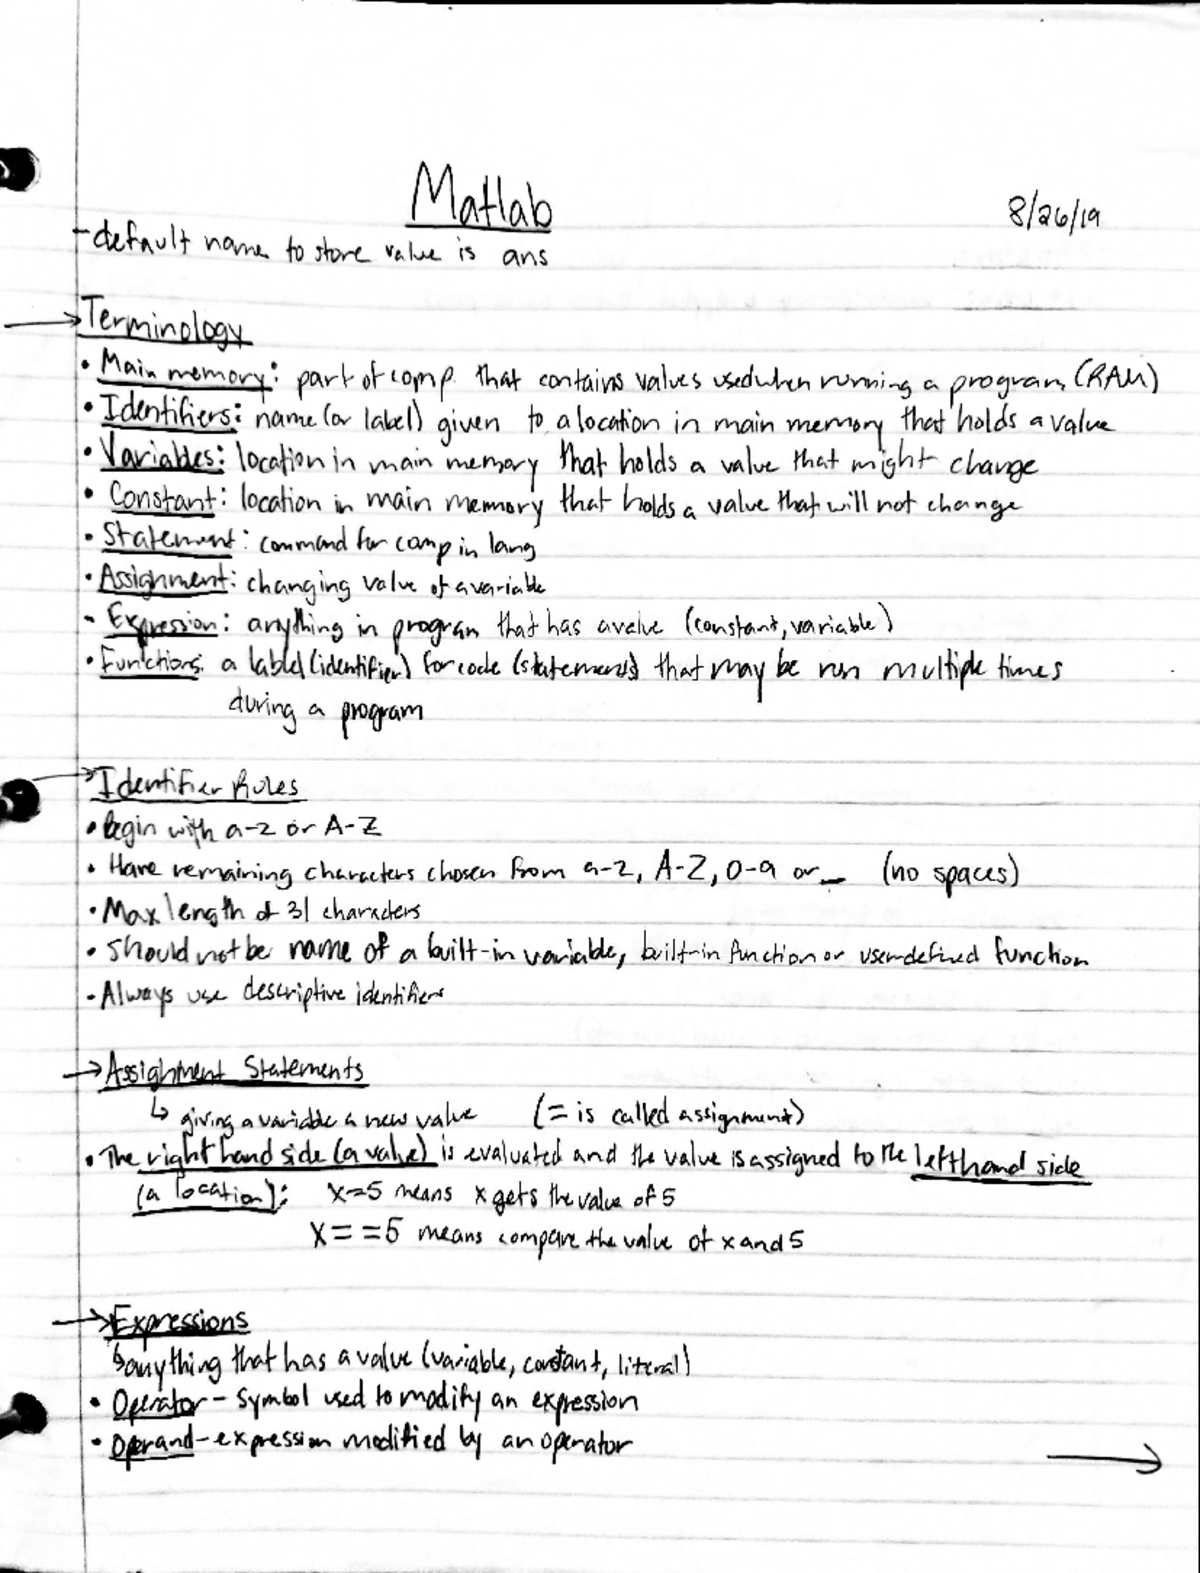 Matlab
8/26/19
-default name to store value is ans
→Terminology
• Main memory: part of comp. that contains values used when running a program (RAM)
• Identifiers: name (or label) given to a location in main memory that holds a value
• Variables: location in main memory that holds a value that might change
• Constant: location in main memory that holds a value that will not change
• Statement: command for comp in lang
• Assignment: changing value of a variable
• Expression: anything in program that has a value (constant, variable)
• Functions: a label (identifier) for code (statements) that may be run multiple times
during a program
→Identifier Rules
• begin with a-z or A-Z
• Have remaining characters chosen from a-z, A-Z, 0-9 or _ (no spaces)
• Max length of 31 characters
• should not be name of a built-in variable, built-in function or user-defined function
• Always use descriptive identifiers
→Assignment Statements
↳ giving a variable a new value (= is called assignment)
• The right hand side (a value) is evaluated and the value is assigned to the left hand side
(a location): x=5 means x gets the value of 5
x==5 means compare the value of x and 5
→Expressions
↳anything that has a value (variable, constant, literal)
• Operator - symbol used to modify an expression
• Operand - expression modified by an operator
→